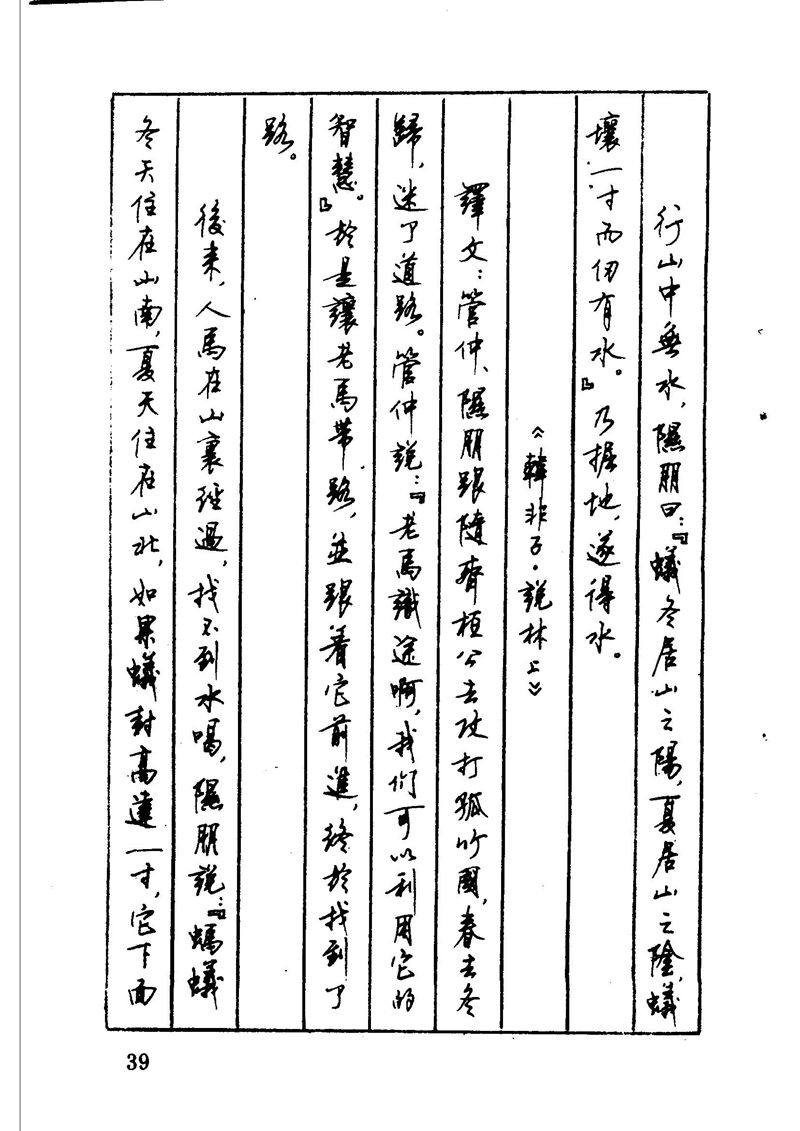 行山中無水，隰朋曰：『蟻冬居山之陽，夏居山之陰，蟻
壤一寸而仞有水。』乃掘地，遂得水。
《韓非子·說林上》
譯文：管仲、隰朋跟隨齊桓公去攻打孤竹國，春去冬
歸，迷了道路。管仲説：『老馬識途啊，我們可以利用它的
智慧。』於是讓老馬帶路，並跟着它前進，終於找到了
路。
後來，人馬在山裏經過，找不到水喝，隰朋説：『螞蟻
冬天住在山南，夏天住在山北，如果蟻封高達一寸，它下面
39